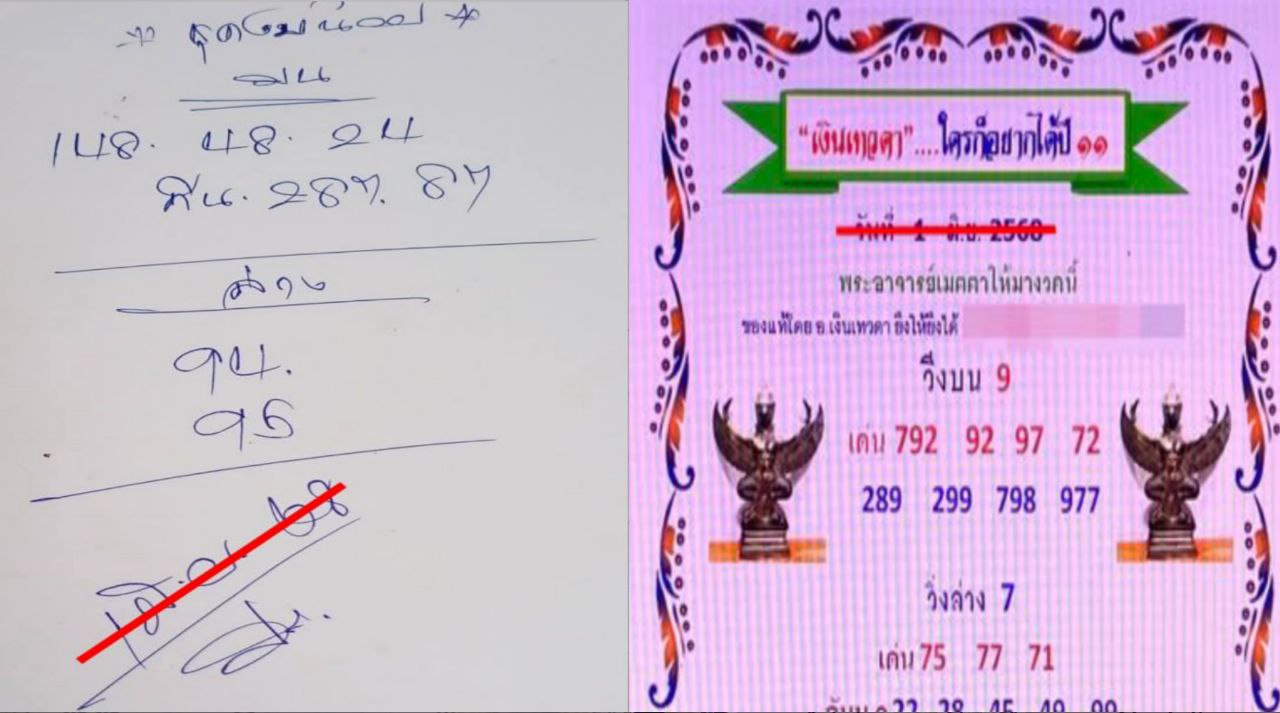 บน
148. 48. 24
287. 87
ล่าง
94.
95
"เงินเทวดา"....ใครก็อยากได้ปี ๑๑
วันที่ 1 มิ.ย. 2568
พระอาจารย์เมตตาให้มางวดนี้
ของแท้โดย อ.เงินเทวดา ยิ่งให้ยิ่งได้
วิ่งบน 9
เด่น 792 92 97 72
289 299 798 977
วิ่งล่าง 7
เด่น 75 77 71
22 28 45 49 99